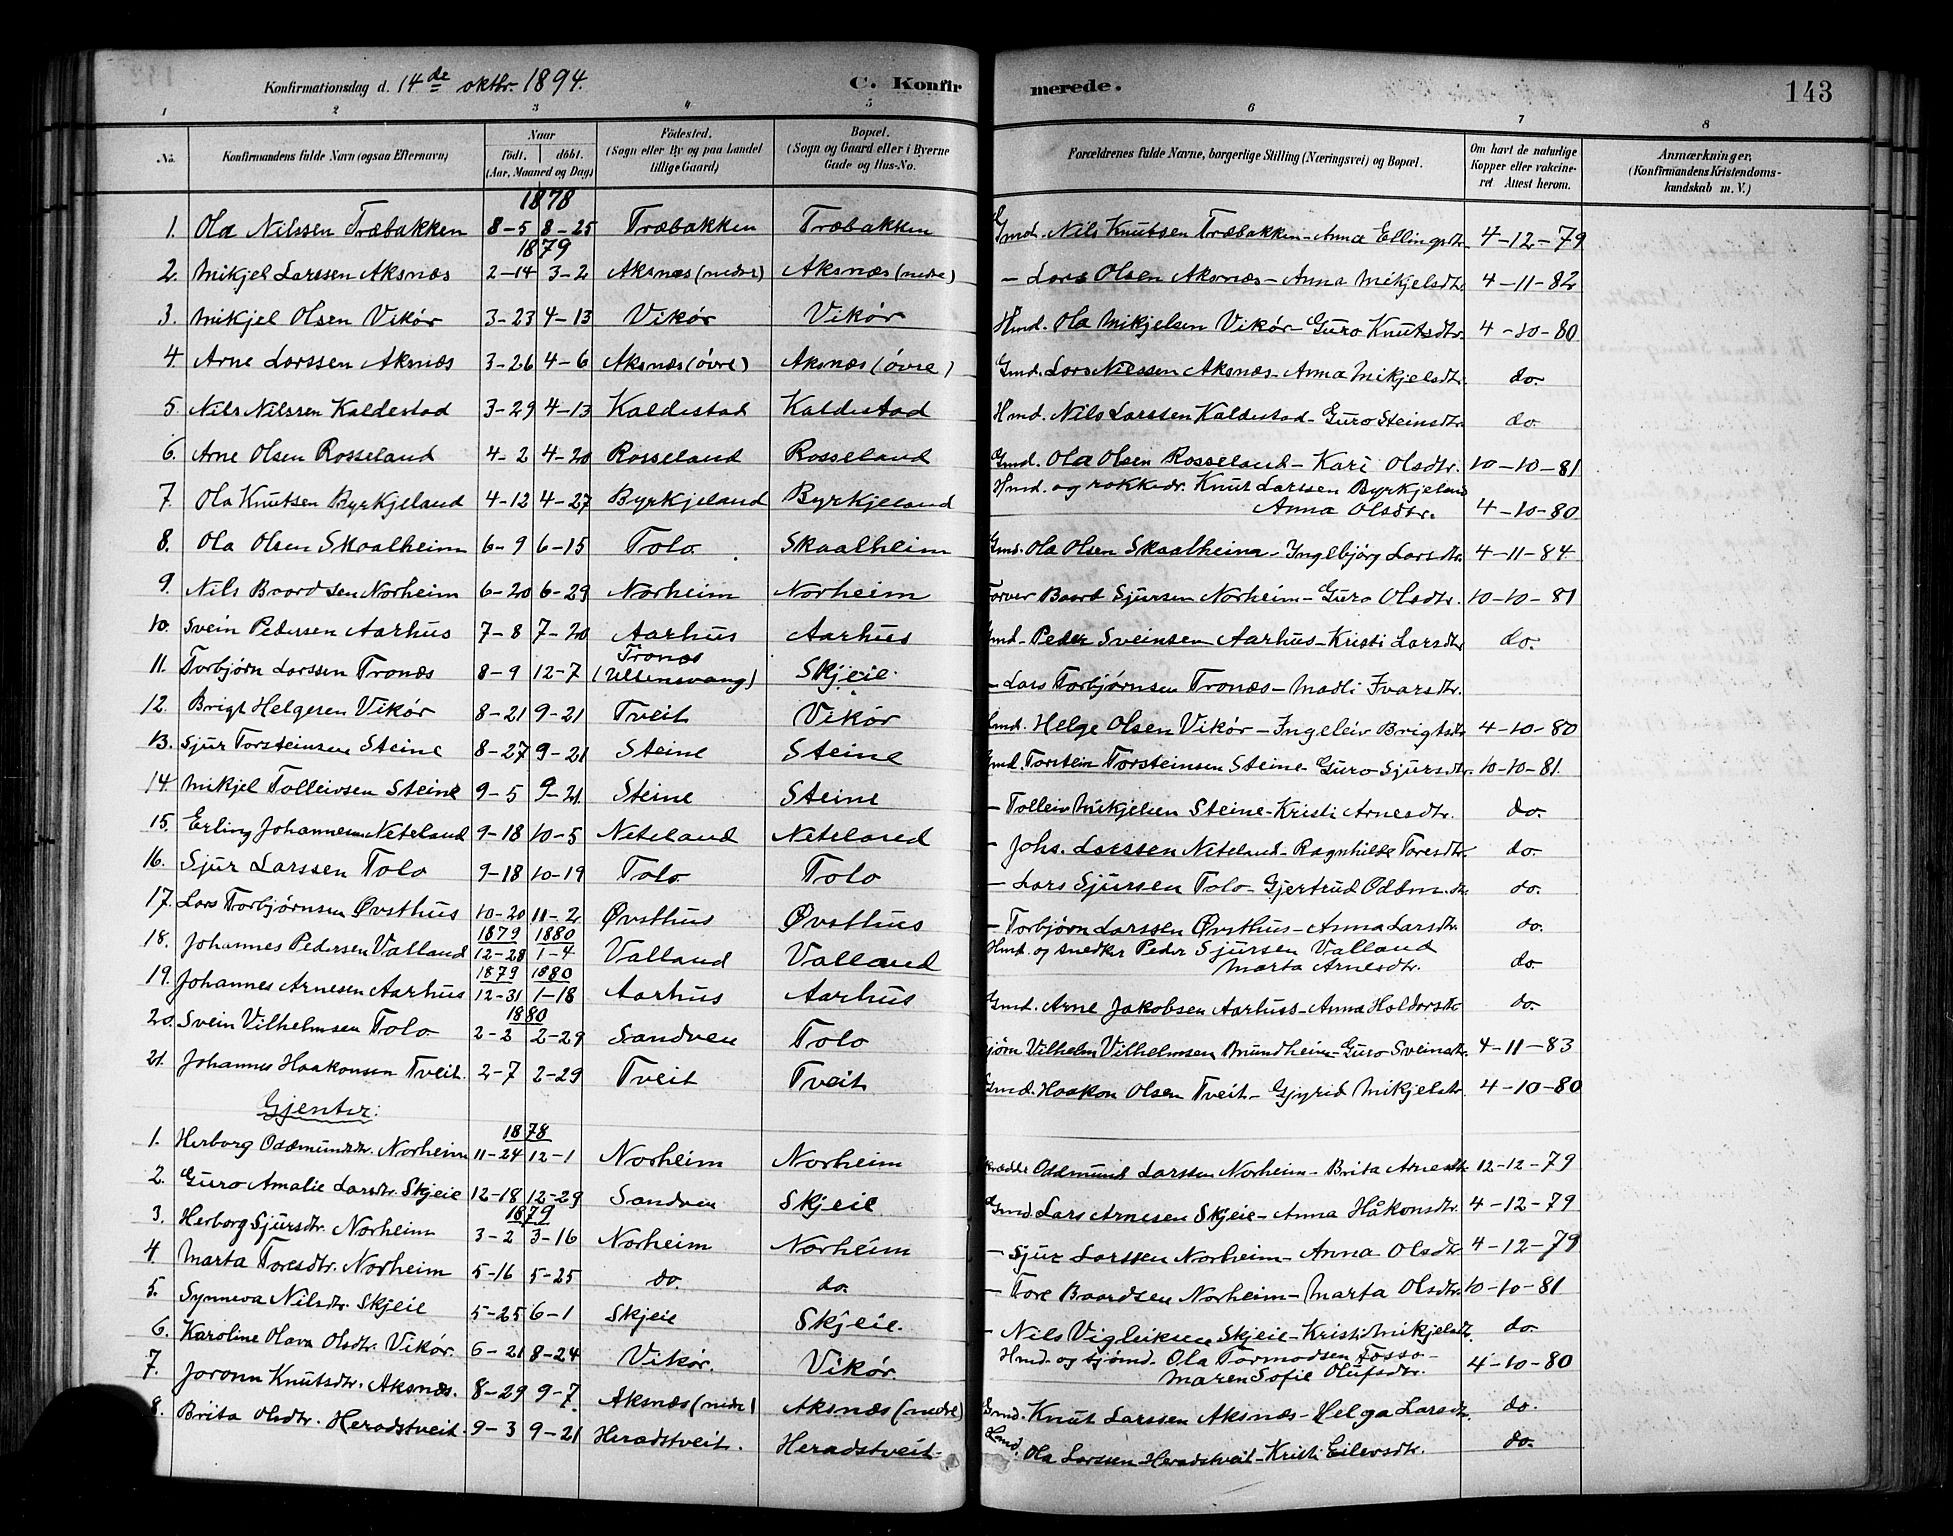 Konfirmationsdag d. 14de oktbr. 1894.
C. Konfirmerede.
143
1 2 3 4 5 6 7 8
No. Konfirmandens fulde Navn (ogsaa Efternavn) Naar födt. döbt. (Aar, Maaned og Dag) Födested. (Sogn eller By og paa Landet tillige Gaard) Bopæl. (Sogn og Gaard eller i Byerne Gade og Hus-No. Forældrenes fulde Navne, borgerlige Stilling (Næringsvei) og Bopæl. Om havt de naturlige Kopper eller vakcineret Attest herom. Anmærkninger. (Konfirmandens Kristendomskundskab m. V.)
1878
1. Ola Nilssen Træbakken 8-5 8-25 Træbakken Træbakken Gmd. Nils Knutsen Træbakken - Anna Ellingsdtr. 4-12-79
1879
2. Mikjel Larssen Aksnæs 2-14 3-2 Aksnæs (nedre) Aksnæs (nedre) - Lars Olsen Aksnæs - Anna Mikjelsdtr. 4-11-82
3. Mikjel Olsen Vikør 3-23 4-13 Vikør Vikør Hmd. Ola Mikjelsen Vikør - Guro Knutsdtr. 4-10-80
4. Arne Larssen Aksnæs 3-26 4-6 Aksnæs (övre) Aksnæs (övre) Gmd. Lars Nilssen Aksnæs - Anna Mikjelsdtr. do.
5. Nils Nilssen Kaldestad 3-29 4-13 Kaldestad Kaldestad Hmd. Nils Larssen Kaldestad - Guro Steinsdtr. do
6. Arne Olsen Rosseland 4-2 4-20 Rosseland Rosseland Gmd. Ola Olsen Rosseland - Kari Olsdtr. 10-10-81
7. Ola Knutsen Byrkjeland 4-12 4-27 Byrkjeland Byrkjeland Hmd. og rokkedr. Knut Larssen Byrkjeland
Anna Olsdtr. 4-10-80
8. Ola Olsen Skaalheim 6-9 6-15 Tolo Skaalheim Gmd. Ola Olsen Skaalheim - Ingebjörg Larsdtr. 4-11-84
9. Nils Baardsen Norheim 6-20 6-29 Norheim Norheim Farver Baard Sjursen Norheim - Guro Olsdtr. 10-10-81
10. Svein Pedersen Aarhus 7-8 7-20 Aarhus Aarhus Gmd. Peder Sveinsen Aarhus - Kristi Larsdtr do.
11. Torbjørn Larssen Tronæs 8-9 12-7 Tronæs (Ullensvang) Skjeie. - Lars Torbjørnsen Tronæs - Madli Ivarsdtr.
12. Brigt Helgesen Vikør 8-21 9-21 Tveit Vikør Hmd. Helge Olsen Vikør - Ingeleiv Brigtsdtr 4-10-80
13. Sjur Torsteinsen Steine 8-27 9-21 Steine Steine Gmd. Torstein Torsteinsen Steine - Guro Sjursdtr. 10-10-81.
14. Mikjel Tolleivsen Steine 9-5 9-21. Steine Steine - Tolleiv Mikjelsen Steine - Kristi Arnesdtr. do.
15. Erling Johannesen Neteland 9-18 10-5 Neteland Neteland - Johs. Larssen Neteland - Ragnhilde Toresdtr. do.
16. Sjur Larssen Tolo 9-18 10-19 Tolo Tolo - Lars Sjursen Tolo - Gjertrud Oddm.dtr. do.
17. Lars Torbjørnsen Øvsthus 10-20 11-2 Øvsthus Øvsthus - Torbjørn Larssen Øvsthus - Anna Larsdtr. do.
1879 1880
18. Johannes Pedersen Valland 12-28 1-4 Valland Valland Hmd. og snedker Peder Sjursen Valland
Marta Arnesdtr. do
1879 1880
19. Johannes Arnesen Aarhus 12-31 1-18 Aarhus Aarhus Gmd. Arne Jakobsen Aarhus - Anna Haldorsdtr do.
1880
20. Svein Vilhelmsen Tolo 2-2 2-29 Sandven Tolo Vilhelm Vilhelmsen Mundheim - Guro Sveinsdtr. 4-11-83
21. Johannes Haakonsen Tveit. 2-7 2-29 Tveit Tveit Gmd. Haakon Olsen Tveit - Gjyrid Mikjelsdtr. 4-10-80
Gjenter:
1878
1. Herborg Oddmundsdtr. Norheim 11-24 12-1 Norheim Norheim Oddmund Larssen Norheim - Brita Arnesdtr 12-12-79
2. Guro Amalie Larsdtr. Skjeie 12-18 12-29 Sandven Skjeie Gmd. Lars Arnesen Skjeie - Anna Håkonsdtr. 4-12-79
1879
3. Herborg Sjursdtr. Norheim 3-2 3-16 Norheim Norheim - Sjur Larssen Norheim - Anna Olsdtr 4-12-79
4 Marta Toresdtr. Norheim 5-16 5-25 do. do. - Tore Baardsen Norheim - Marta Olsdtr. 10-10-81
5. Synneva Nilsdtr. Skjeie 5-25 6-1 Skjeie Skjeie. - Nils Vigleiksen Skjeie - Kristi Mikjelsdtr. do.
6. Karoline Olava Olsdtr. Vikør. 6-21 8-24 Vikør. Vikør. Hmd. og sjömd. Ola Tormodsen Fosso -
Maren Sofie Olufsdtr. 4-10-80
7. Joronn Knutsdtr. Aksnæs. 8-29 9-7. Aksnæs (nedre) Aksnæs (nedre) Gmd. Knut Larssen Aksnæs - Helga Larsdtr. do.
8. Brita Olsdtr. Heradstveit. 9-3 9-21 Heradstveit. Heradstveit. Hmd. Ola Larssen Heradstveit - Kristi Eilevsdtr. do.